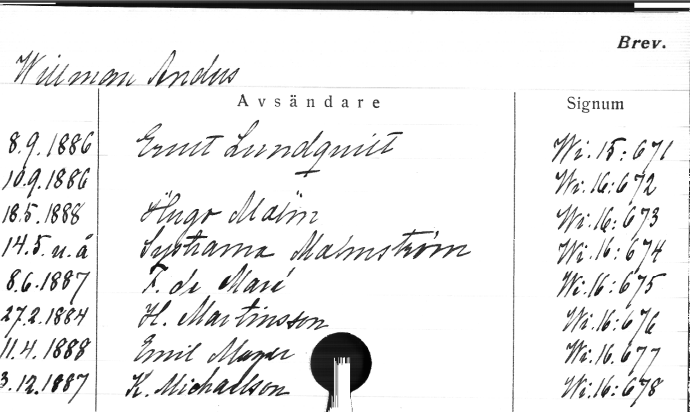 Brev.
Willman Anders
Avsändare Signum
8.9.1886 Ernst Lundquist Wi. 15:671
10.9.1886 Wi. 16:672
18.5.1888 Hugo Malm Wi. 16:673
14.5. u.å Systrarna Malmström Wi. 16:674
8.6.1887 F. de Maré Wi. 16:675
27.2.1884 H. Martinsson Wi. 16:676
11.4.1888 Emil Meyer Wi. 16.677
3.12.1887 K. Michaelson Wi. 16:678